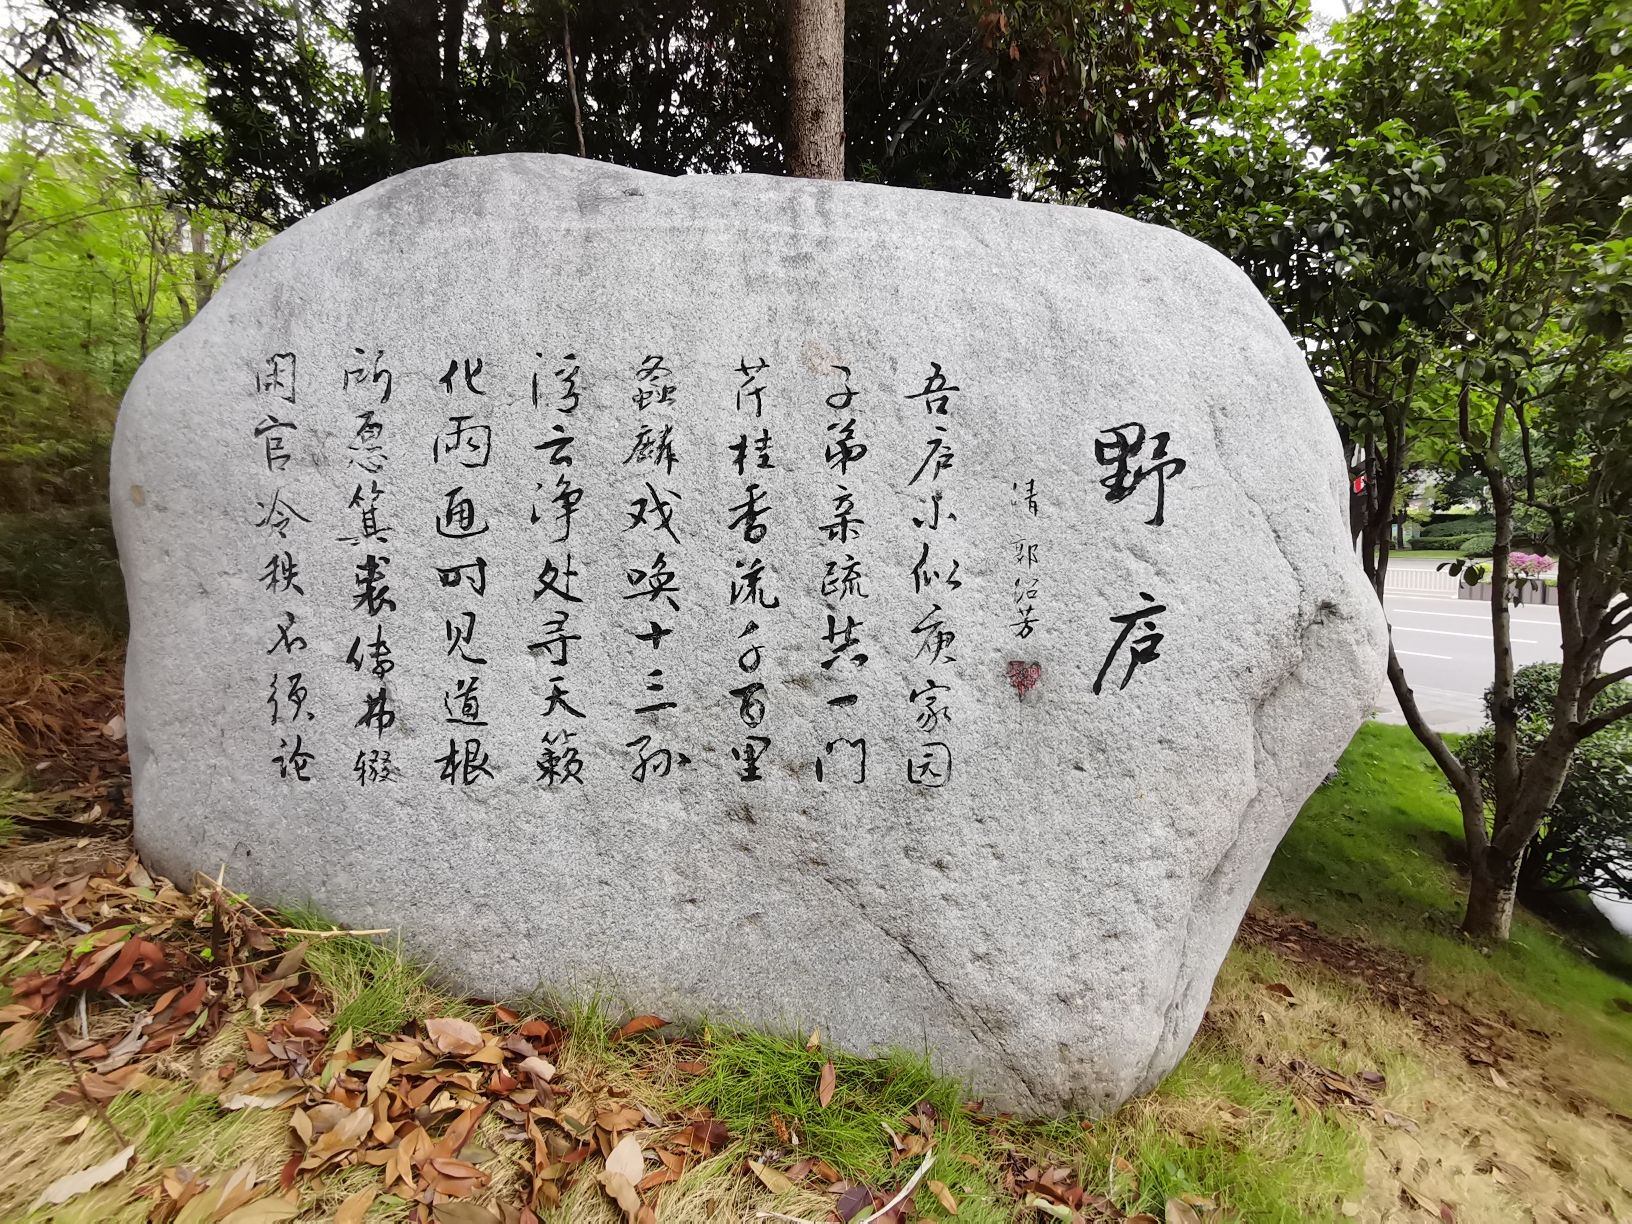 野庐
清 郭绍芳
吾庐小似庾家园
子弟亲疏共一门
芹桂香流千百里
螽麟戏唤十三孙
浮云净处寻天籁
化雨通时见道根
所愿箕裘传弗辍
闲官冷秩不须论